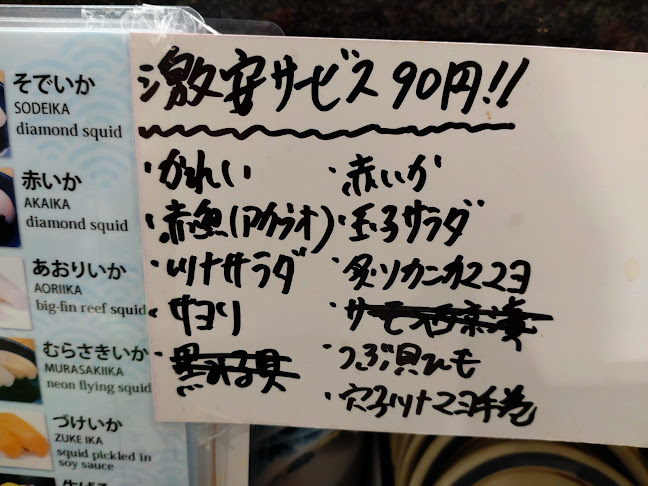 そでいか
SODEIKA
diamond squid
赤いか
AKAIKA
diamond squid
あおりいか
AORIIKA
big-fin reef squid
むらさきいか
MURASAKIIKA
neon flying squid
づけいか
ZUKE IKA
squid pickled in
soy sauce
激安サービス 90円!!
・かれい
・赤魚(アカウオ)
・ツナサラダ
・サヨリ
・赤いか
・玉子サラダ
・炙りカニカママヨ
・つぶ貝ひも
・穴子ツナマヨ手巻